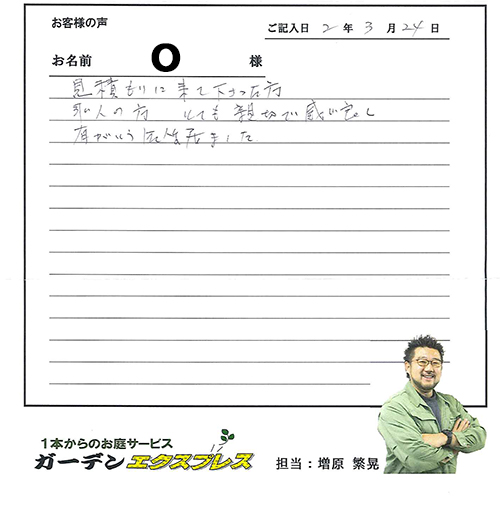 お客様の声
ご記入日 2 年 3 月 24 日
お名前 O 様
見積もりに来て下さった方
職人の方 とても親切で感じ良く
有がとうございました
1本からのお庭サービス
ガーデンエクスプレス
担当：増原 繁晃